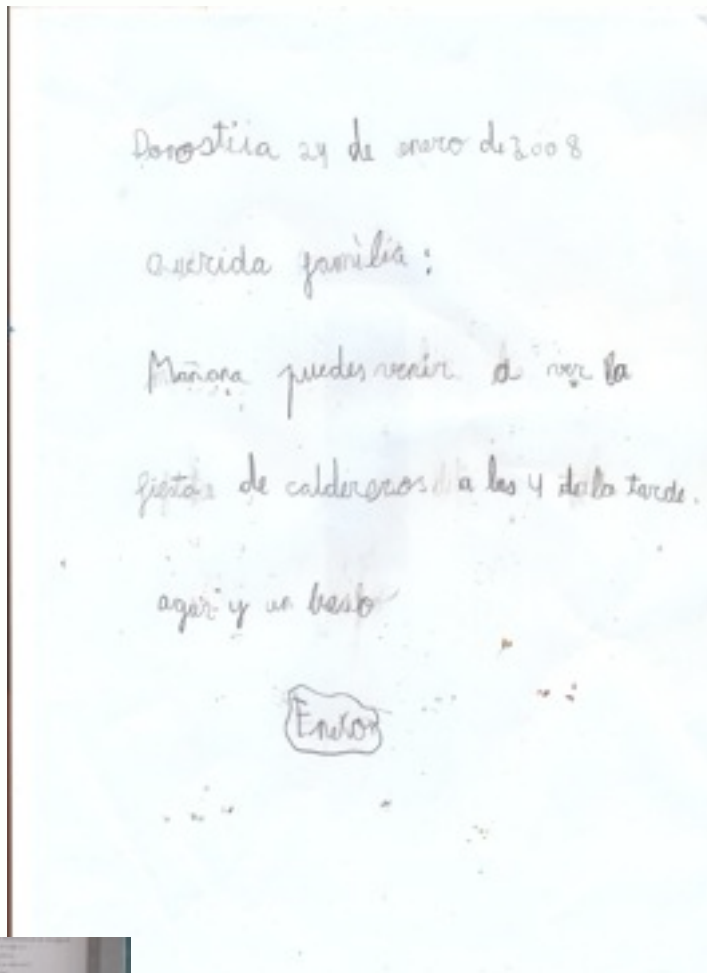 Donostiia 24 de enero de 2008
Querida família:
Mañana puedes venir a ver la
fiesta de caldereros a las 4 de la tarde.
agur y un beso